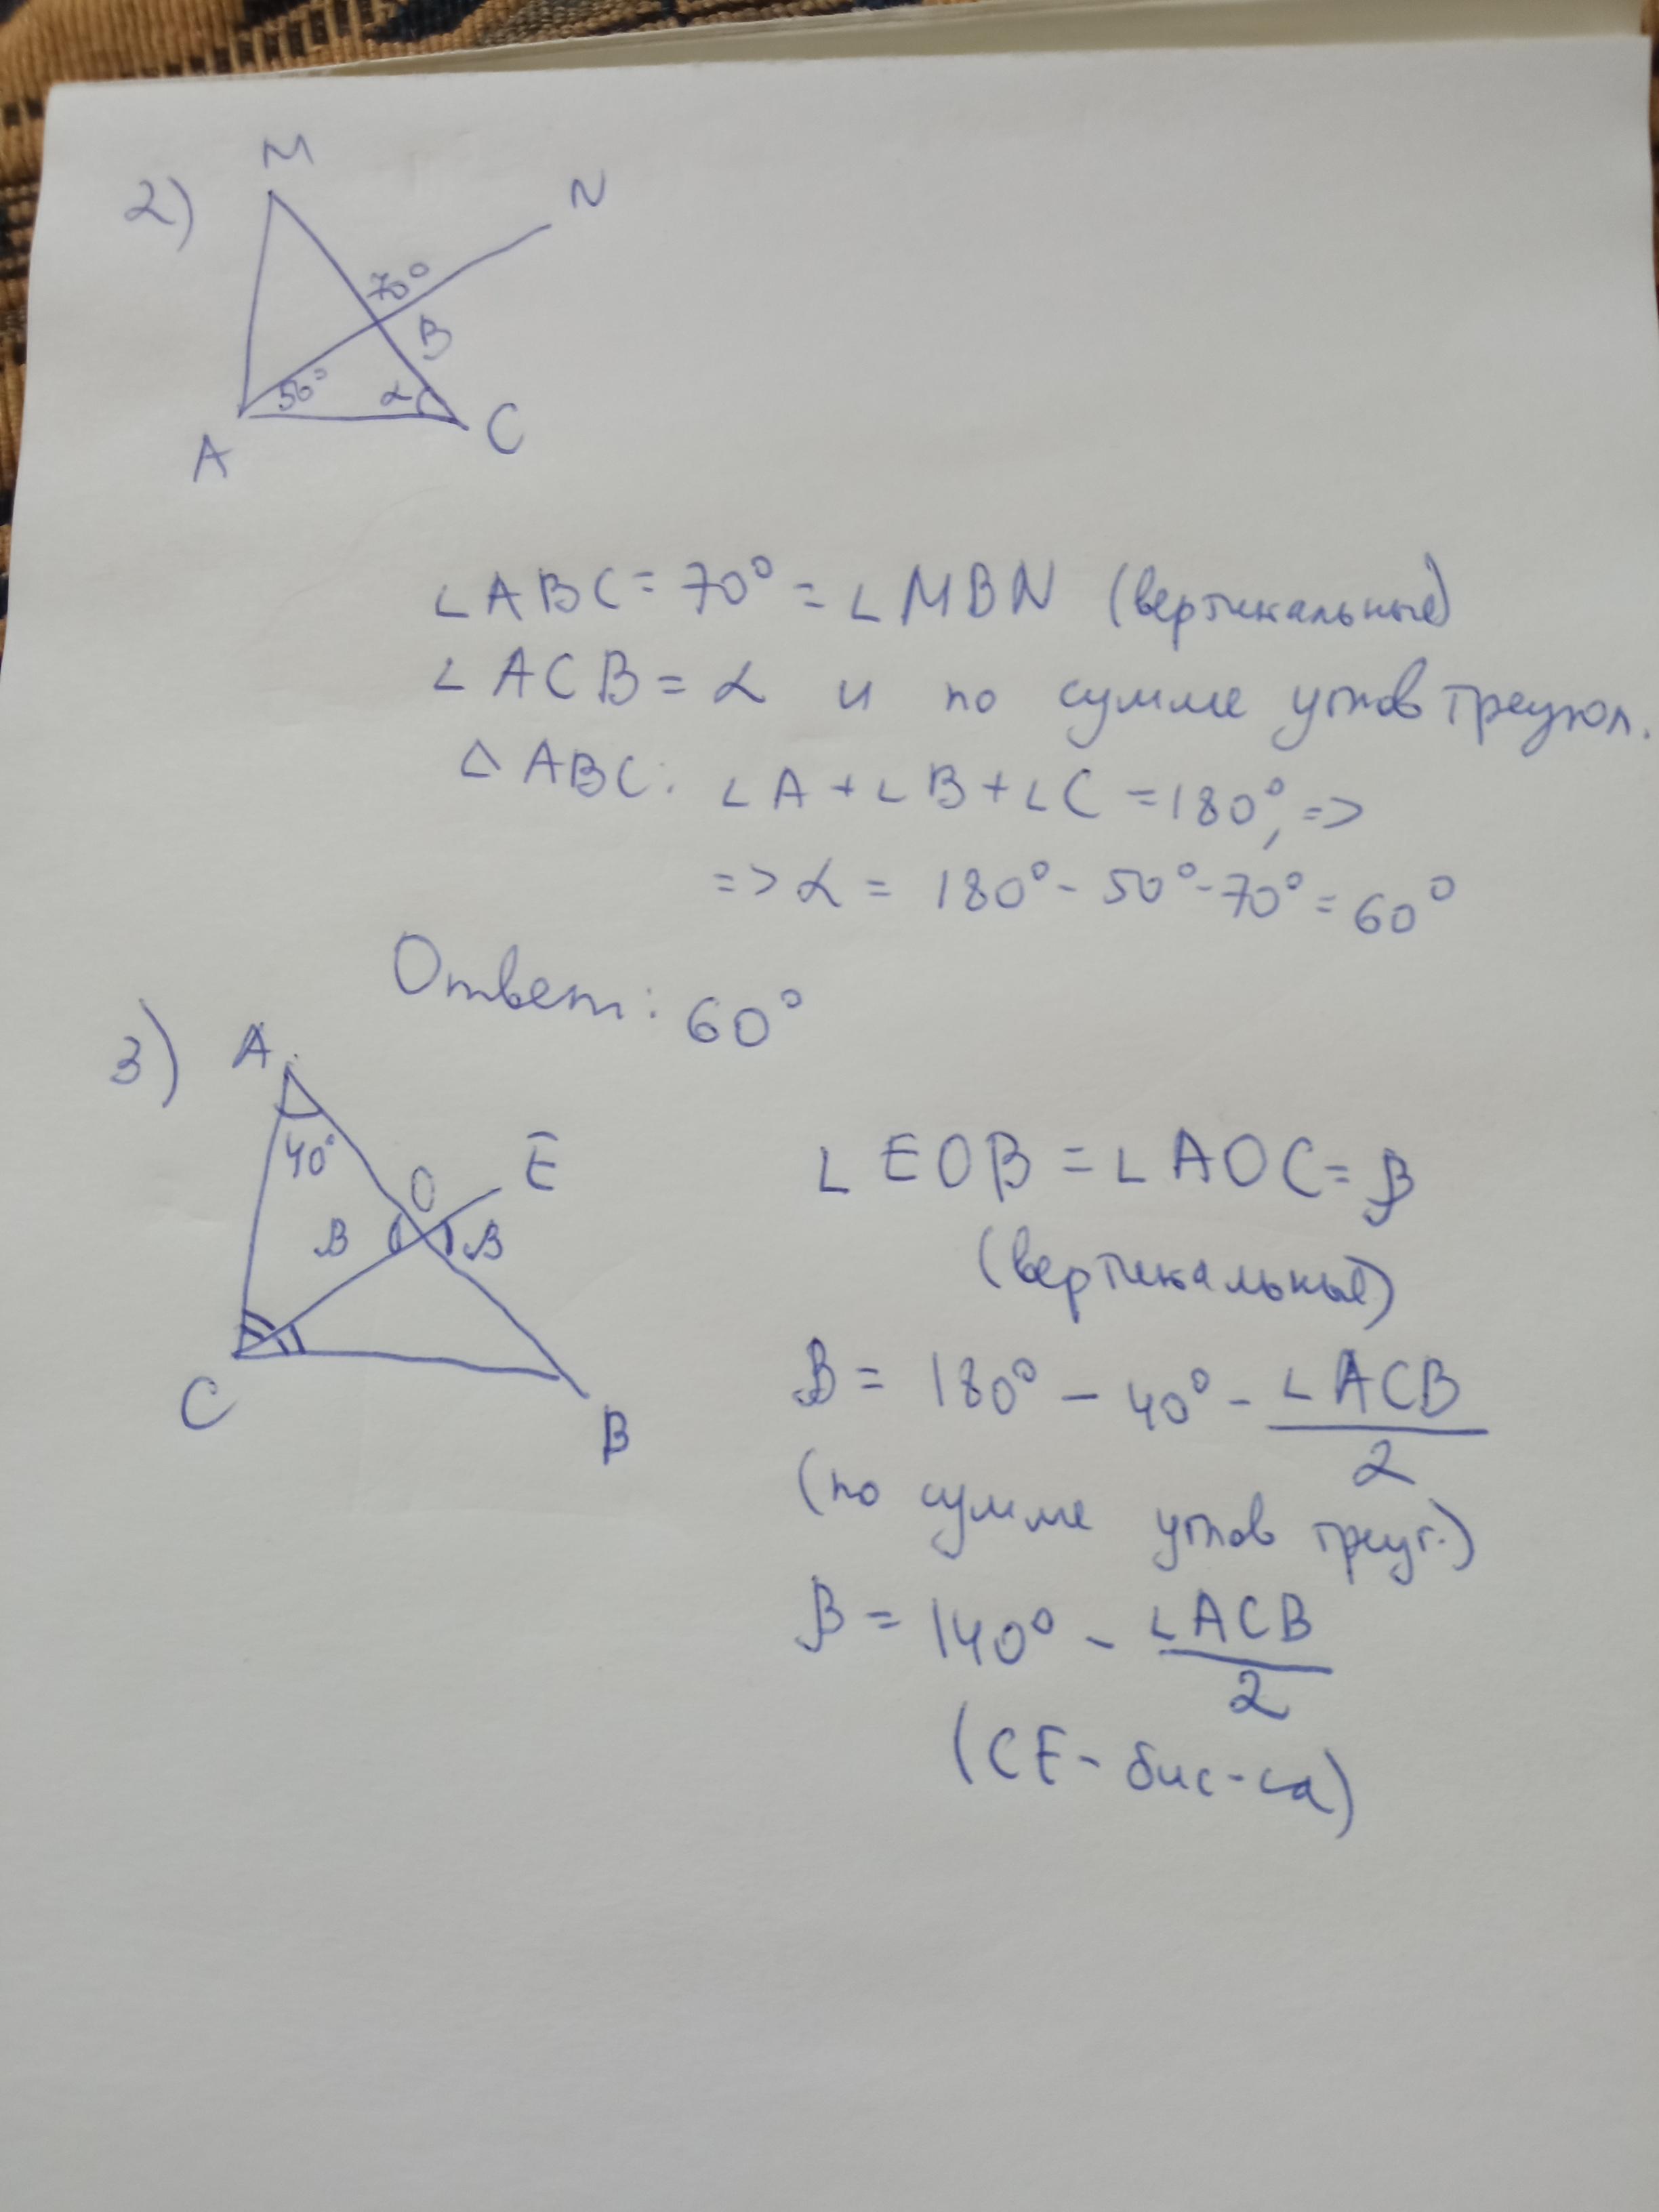 2)
M
N
70°
B
50°
α
A
C
∠ABC = 70° = ∠MBN (вертикальные)
∠ACB = α и по сумме углов треугол.
△ABC: ∠A + ∠B + ∠C = 180°, =>
=> α = 180° - 50° - 70° = 60°
Ответ: 60°
3)
A
40°
O
E
β
β
C
B
∠EOB = ∠AOC = β
(вертикальные)
β = 180° - 40° - ∠ACB/2
(по сумме углов треуг.)
β = 140° - ∠ACB/2
(CE - бис-са)